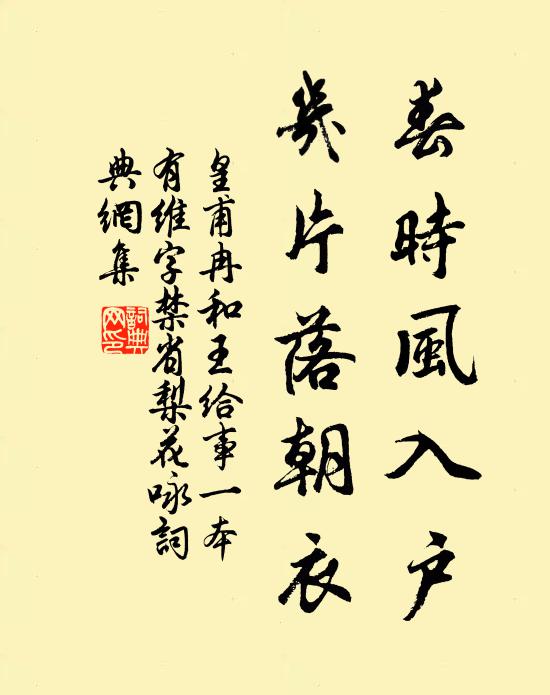 春時風入户
幾片落朝衣
皇甫冉和王給事一本
有維字禁省梨花咏詞
典網集
詞典网印